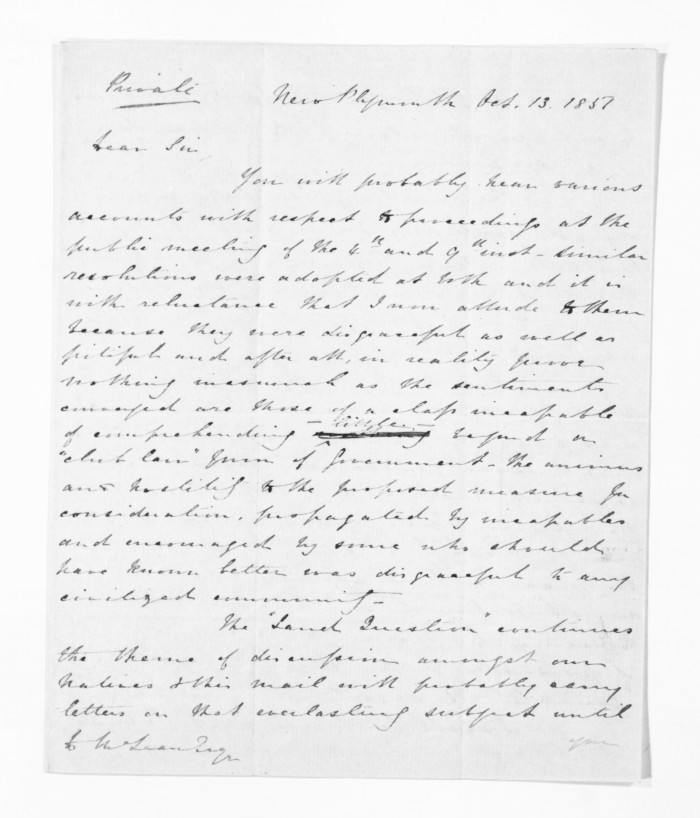 Private
New Plymouth Oct. 13. 1857
Dear Sir
You will probably hear various
accounts with respect to proceedings at the
public meeting of the 4th and 9th inst - similar
resolutions were adopted at both and it is
with reluctance that I now allude to them
because they were disgraceful as well as
pitiful and after all, in reality prove
nothing inasmuch as the sentiments
conveyed are those of a class incapable
of comprehending beyond a
"club law" form of Government - The animus
and hostility to the proposed measure for
consideration, propagated by incapables
and encouraged by some who should
have known better was disgraceful to any
civilized community -
The "Land Question" continues
the theme of discussion amongst our
Natives & this mail will probably carry
letters on that everlasting subject until
D McLean Esqr
your